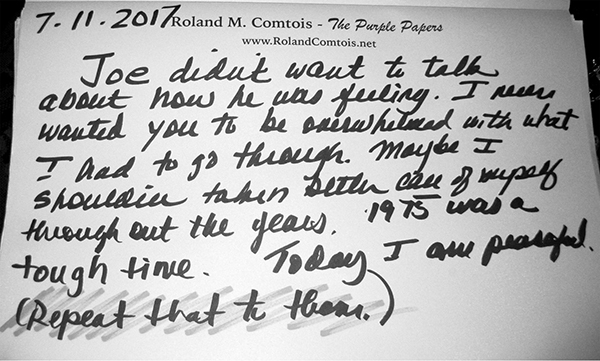 7.11.2017 Roland M. Comtois - The Purple Papers
www.RolandComtois.net
Joe didn't want to talk
about how he was feeling. I never
wanted you to be overwhelmed with what
I had to go through. Maybe I
should taken better care of myself
through out the years. 1975 was a
tough time. Today I am peaceful.
(Repeat that to them.)